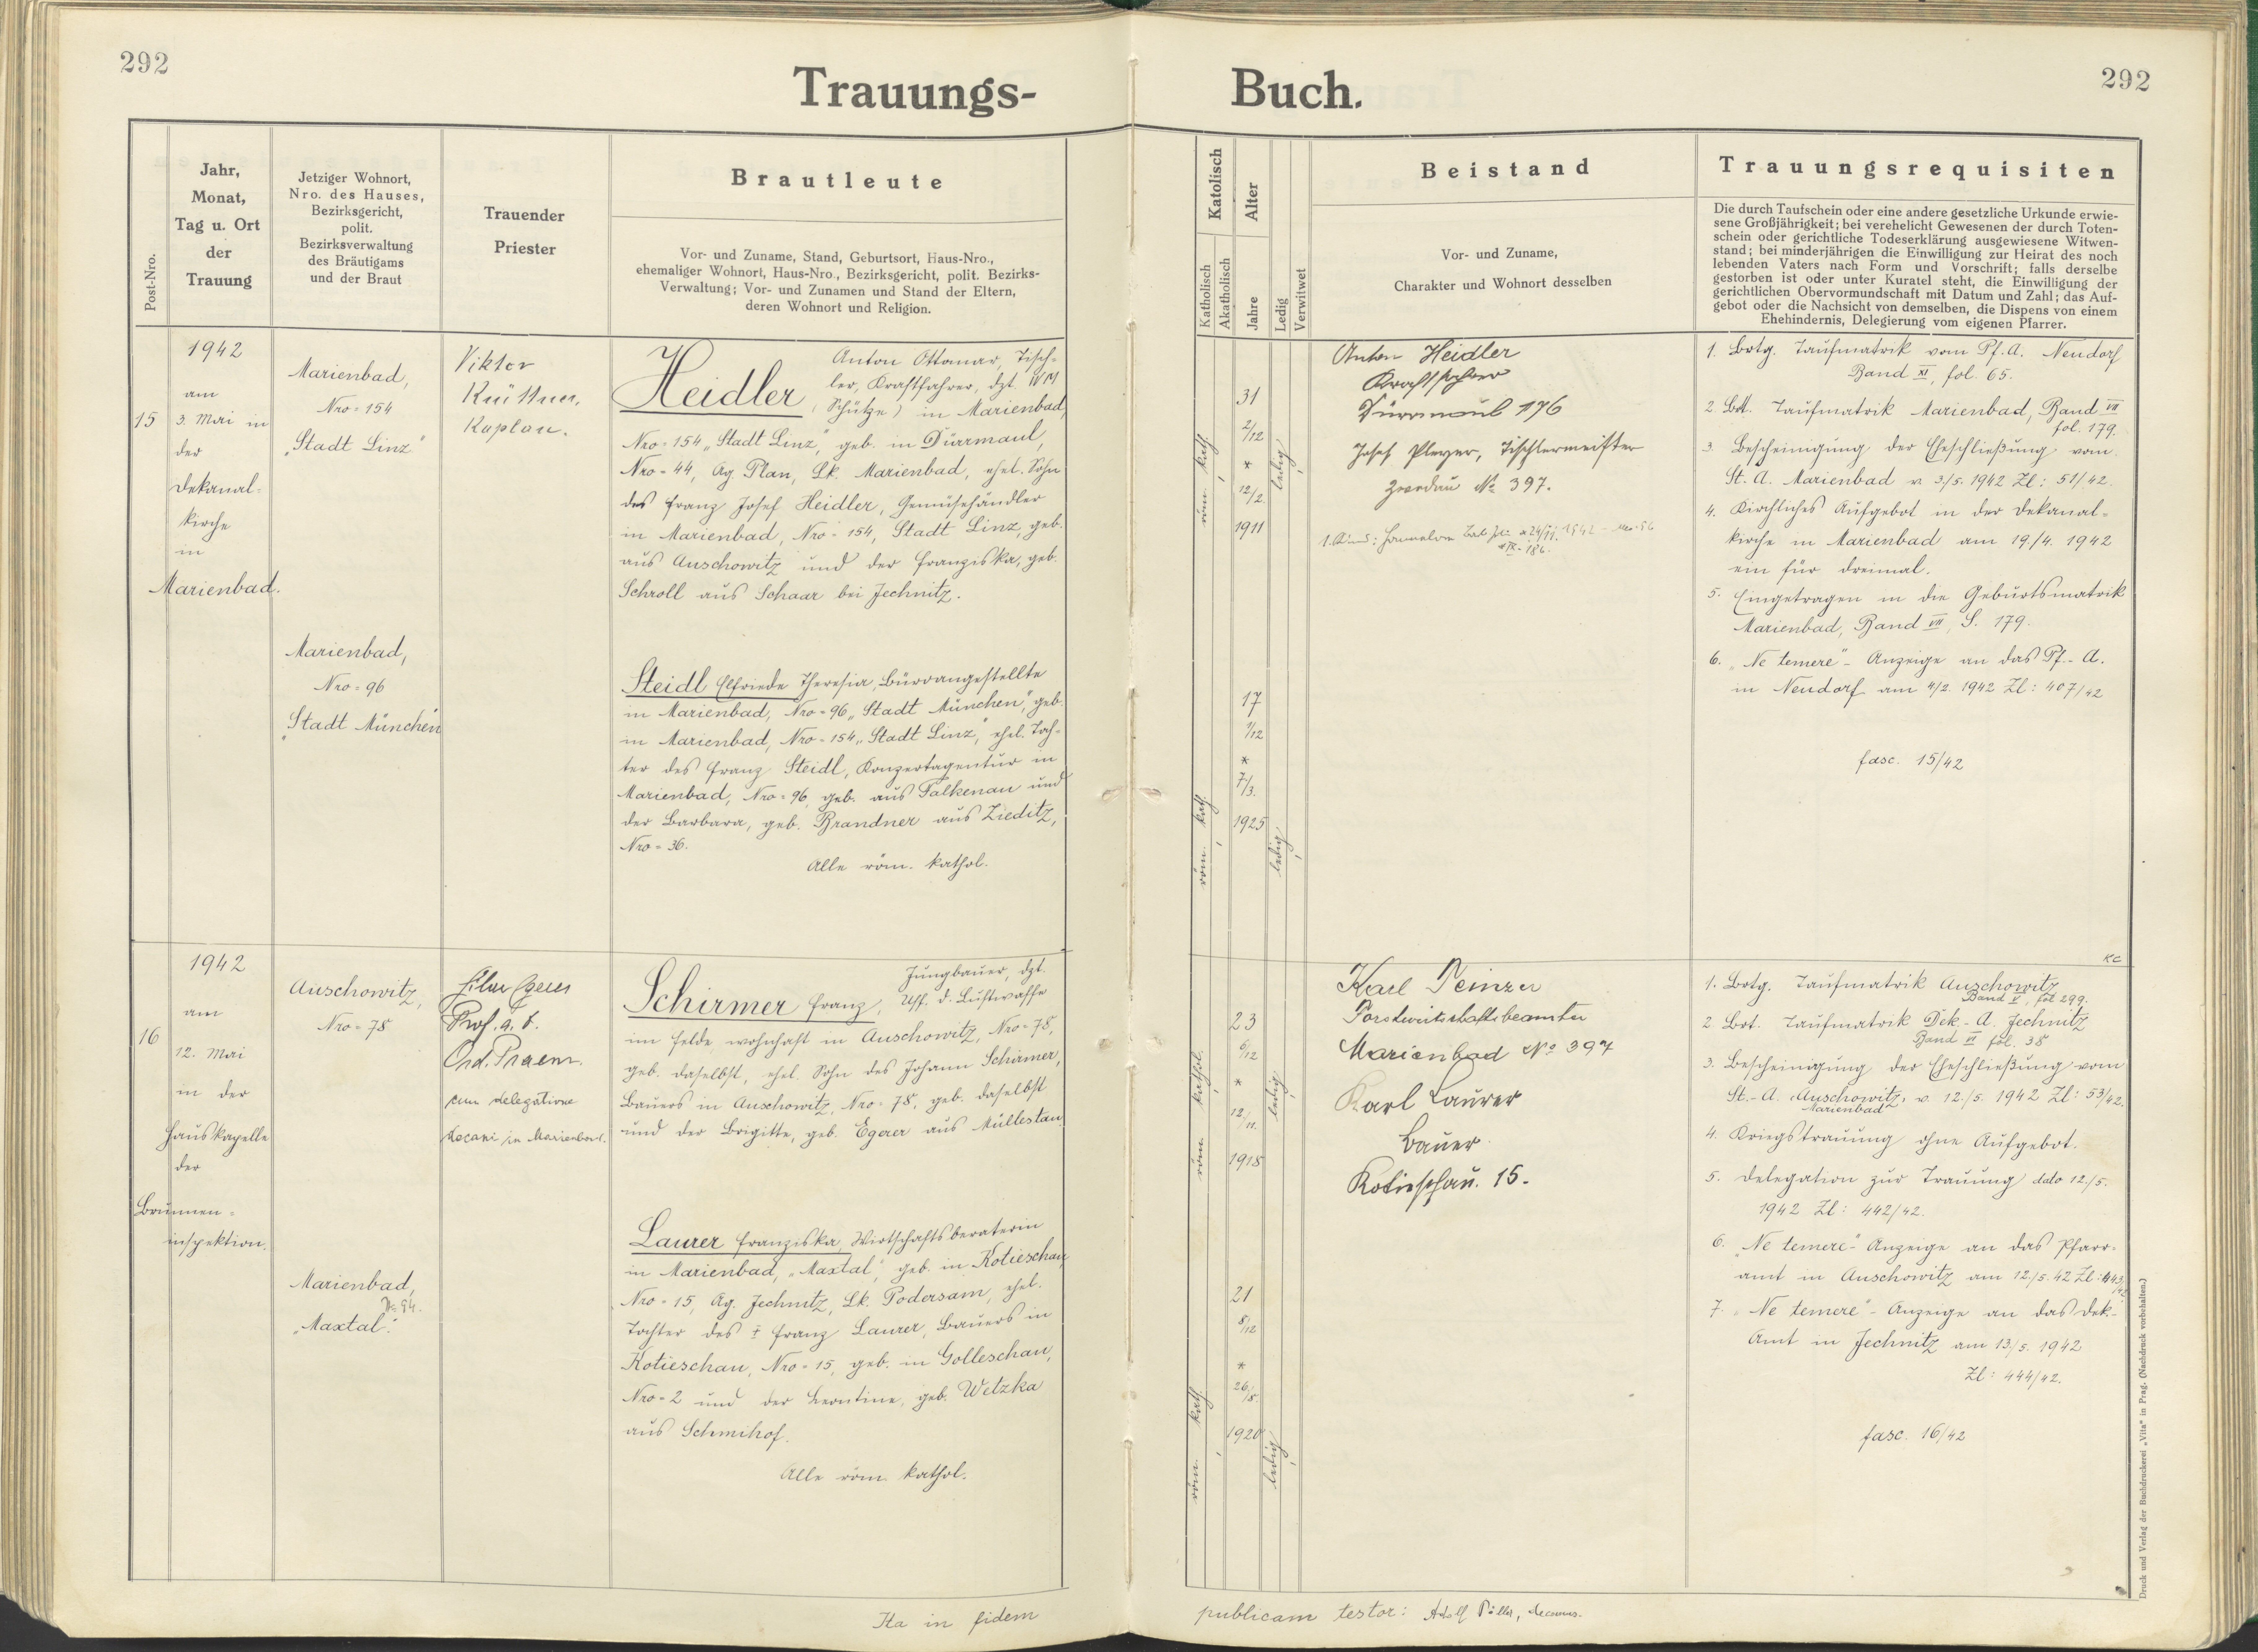 292
Trauungs-
Post-Nro.
Jahr,
Monat,
Tag u. Ort
der
Trauung
Jetziger Wohnort,
Nro. des Hauses,
Bezirksgericht,
polit.
Bezirksverwaltung
des Bräutigams
und der Braut
Trauender
Priester
Brautleute
Vor- und Zuname, Stand, Geburtsort, Haus-Nro.,
ehemaliger Wohnort, Haus-Nro., Bezirksgericht, polit. Bezirks-
Verwaltung; Vor- und Zunamen und Stand der Eltern,
deren Wohnort und Religion.
15
1942
am
3. Mai in
der
Dekanal-
kirche
in
Marienbad.
Marienbad,
Nro = 154
„Stadt Linz"
Marienbad,
Nro = 96
„Stadt München"
Viktor
Rüttner,
Kaplan.
Heidler Anton Ottomar, Tisch-
ler, Kraftfahrer, dzt.
(Schütze) in Marienbad,
Nro = 154 „Stadt Linz", geb. in Dürrmaul,
Nro = 44, Ag. Plan, Lk. Marienbad, ehel. Sohn
des Franz Josef Heidler, Gemüsehändler
in Marienbad, Nro = 154, Stadt Linz, geb.
aus Auschowitz und der Franziska, geb.
Schroll aus Schaar bei Jechnitz.
Steidl Elfriede Theresia, Büroangestellte
in Marienbad, Nro = 96 „Stadt München", geb.
in Marienbad, Nro = 154 „Stadt Linz", ehel. Toch-
ter des Franz Steidl, Konzertagentur in
Marienbad, Nro = 96, geb. aus Falkenau und
der Barbara, geb. Brandner aus Zieditz,
Nro = 36.
Alle röm. kathol.
16
1942
am
12. Mai
in der
Hauskapelle
der
Brunnen =
inspektion.
Auschowitz,
Nro = 78
Marienbad,
No 94.
„Maxtal".
Prof. a. D.
Ord. Praem.
cum delegatione
decani in Marienbad.
Schirmer Franz, Jungbauer, dzt.
Uff. d. Luftwaffe
im Felde wohnhaft in Auschowitz, Nro = 78,
geb. daselbst, ehel. Sohn des Johann Schirmer,
Bauers in Auschowitz, Nro = 78, geb. daselbst
und der Brigitte, geb. Egerer aus Müllestau.
Laurer Franziska, Wirtschaftsberaterin
in Marienbad, „Maxtal", geb. in Kotieschau,
Nro = 15, Ag. Jechnitz, Lk. Podersam, ehel.
Tochter des † Franz Laurer, Bauers in
Kotieschau, Nro = 15, geb. in Golleschau,
Nro = 2 und der Leontine, geb. Wetzka
aus Schmihof.
Alle röm. kathol.
Ita in fidem
292
Buch.
Katolisch
Katholisch
Akatholisch
Alter
Jahre
Ledig
Verwitwet
Beistand
Vor- und Zuname,
Charakter und Wohnort desselben
Trauungsrequisiten
Die durch Taufschein oder eine andere gesetzliche Urkunde erwie-
sene Großjährigkeit; bei verehelicht Gewesenen der durch Toten-
schein oder gerichtliche Todeserklärung ausgewiesene Witwen-
stand; bei minderjährigen die Einwilligung zur Heirat des noch
lebenden Vaters nach Form und Vorschrift; falls derselbe
gestorben ist oder unter Kuratel steht, die Einwilligung der
gerichtlichen Obervormundschaft mit Datum und Zahl; das Auf-
gebot oder die Nachsicht von demselben, die Dispens von einem
Ehehindernis, Delegierung vom eigenen Pfarrer.
röm. kath.
31
2/12
*
12/2.
1911
ledig
röm. kath.
17
1/12
*
7/3.
1925
ledig
Anton Heidler
Kraftfahrer
Dürrmaul 176
Josef Pleyer, Tischlermeister
No 397.
1. Kind:
1. Brtg. Taufmatrik vom Pf. A. Neudorf
Band XI, fol. 65.
2. Brt. Taufmatrik Marienbad, Band VII
fol. 179.
3. Bescheinigung der Eheschließung vom
St. A. Marienbad v. 3/5. 1942 Zl: 51/42.
4. Kirchliches Aufgebot in der Dekanal-
kirche in Marienbad am 19/4. 1942
ein für dreimal.
5. Eingetragen in die Geburtsmatrik
Marienbad, Band VII, S. 179.
6. „Ne temere" - Anzeige an das Pf. - A.
in Neudorf am 4/2. 1942 Zl: 407/42
fasc. 15/42
röm. kathol.
23
6/12
*
12/11.
1918
ledig
röm. kath.
21
8/12
*
26/8.
1920
ledig
Karl
Forstwirtschaftsbeamter
Marienbad No 397
Karl Laurer
Bauer
Kotieschau. 15.
1. Brtg. Taufmatrik Auschowitz
Band V, fol 299.
2. Brt. Taufmatrik Dek. - A. Jechnitz
Band VI fol. 38
3. Bescheinigung der Eheschließung vom
St. - A. Auschowitz, v. 12./5. 1942 Zl: 53/42.
Marienbad
4. Kriegstrauung ohne Aufgebot.
5. Delegation zur Trauung dato 12./5.
1942 Zl: 442/42.
6. „Ne temere" - Anzeige an das Pfarr-
amt in Auschowitz am 12./5. 42 Zl: 443/42
7. „Ne temere" - Anzeige an das Dek.-
Amt in Jechnitz am 13./5. 1942
Zl: 444/42.
fasc. 16/42
publicam testor: Adolf decanus.
Druck und Verlag der Buchdruckerei „Vita" in Prag. (Nachdruck vorbehalten.)